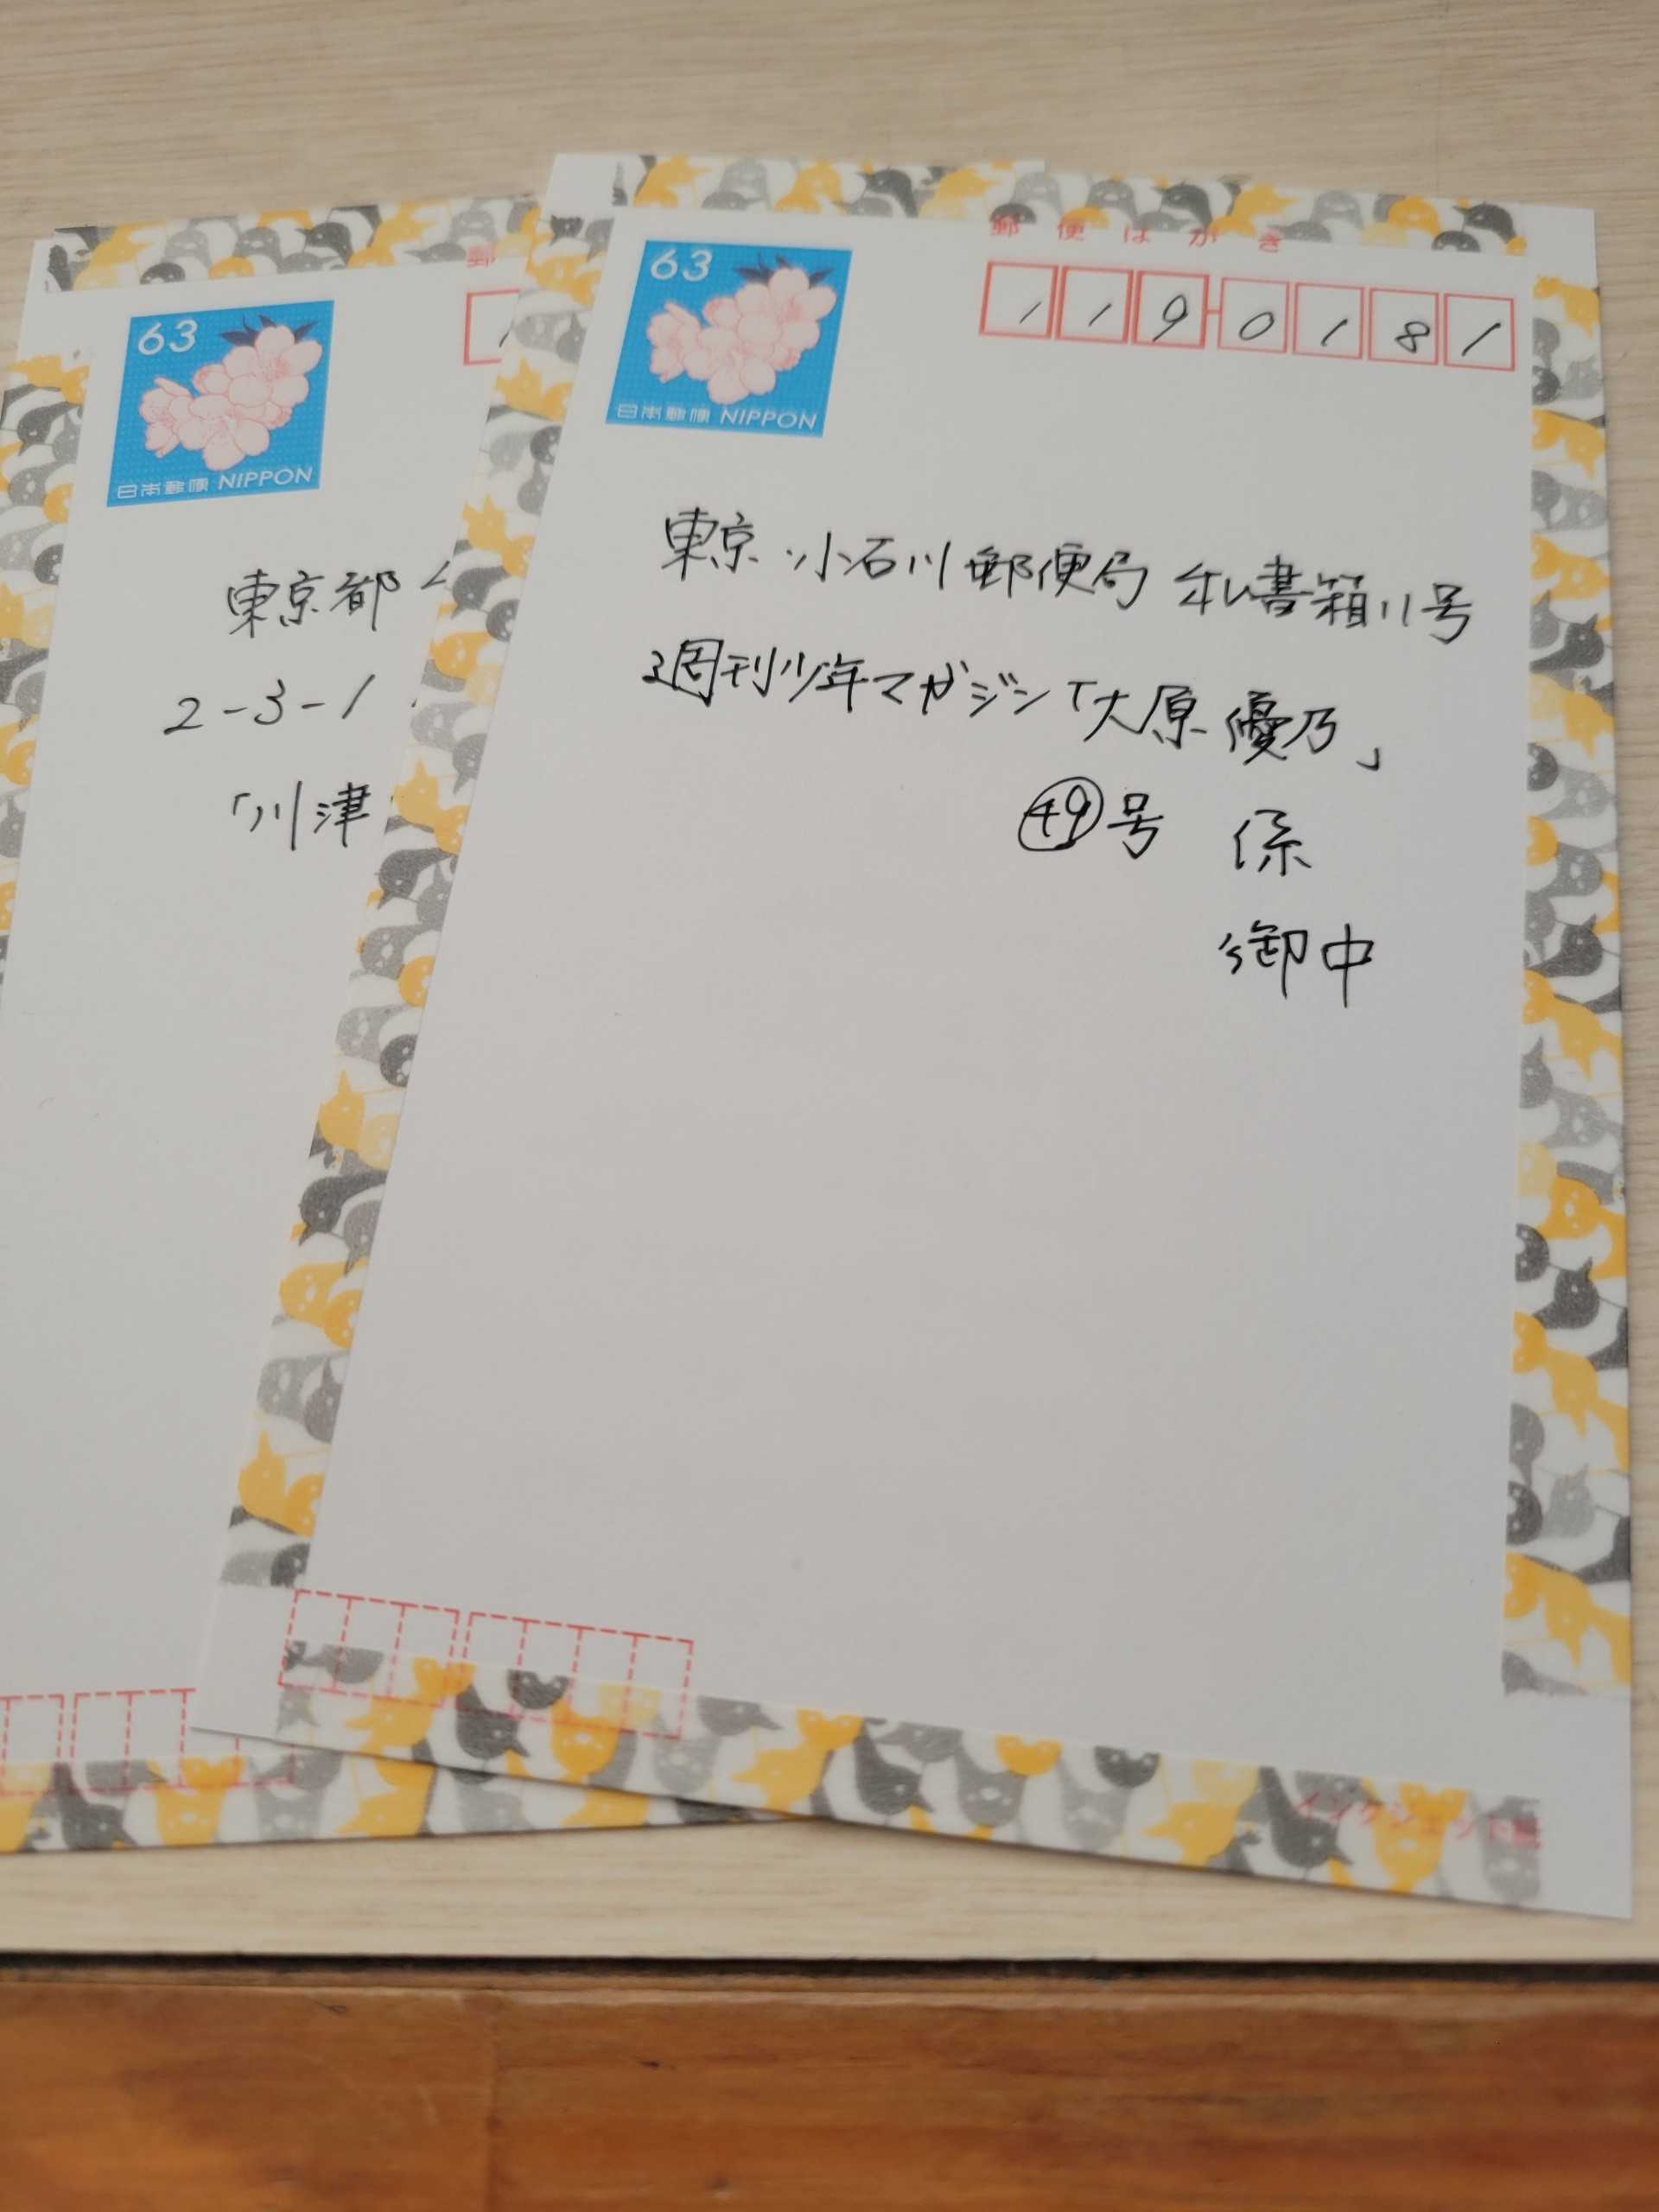 63
日本郵便 NIPPON
郵
1
東京都
2-3-1
「川津
63
日本郵便 NIPPON
郵便はがき
1190181
東京 小石川郵便局 私書箱11号
週刊少年マガジン「大原優乃」
㊾号 係
御中
インクジェット紙